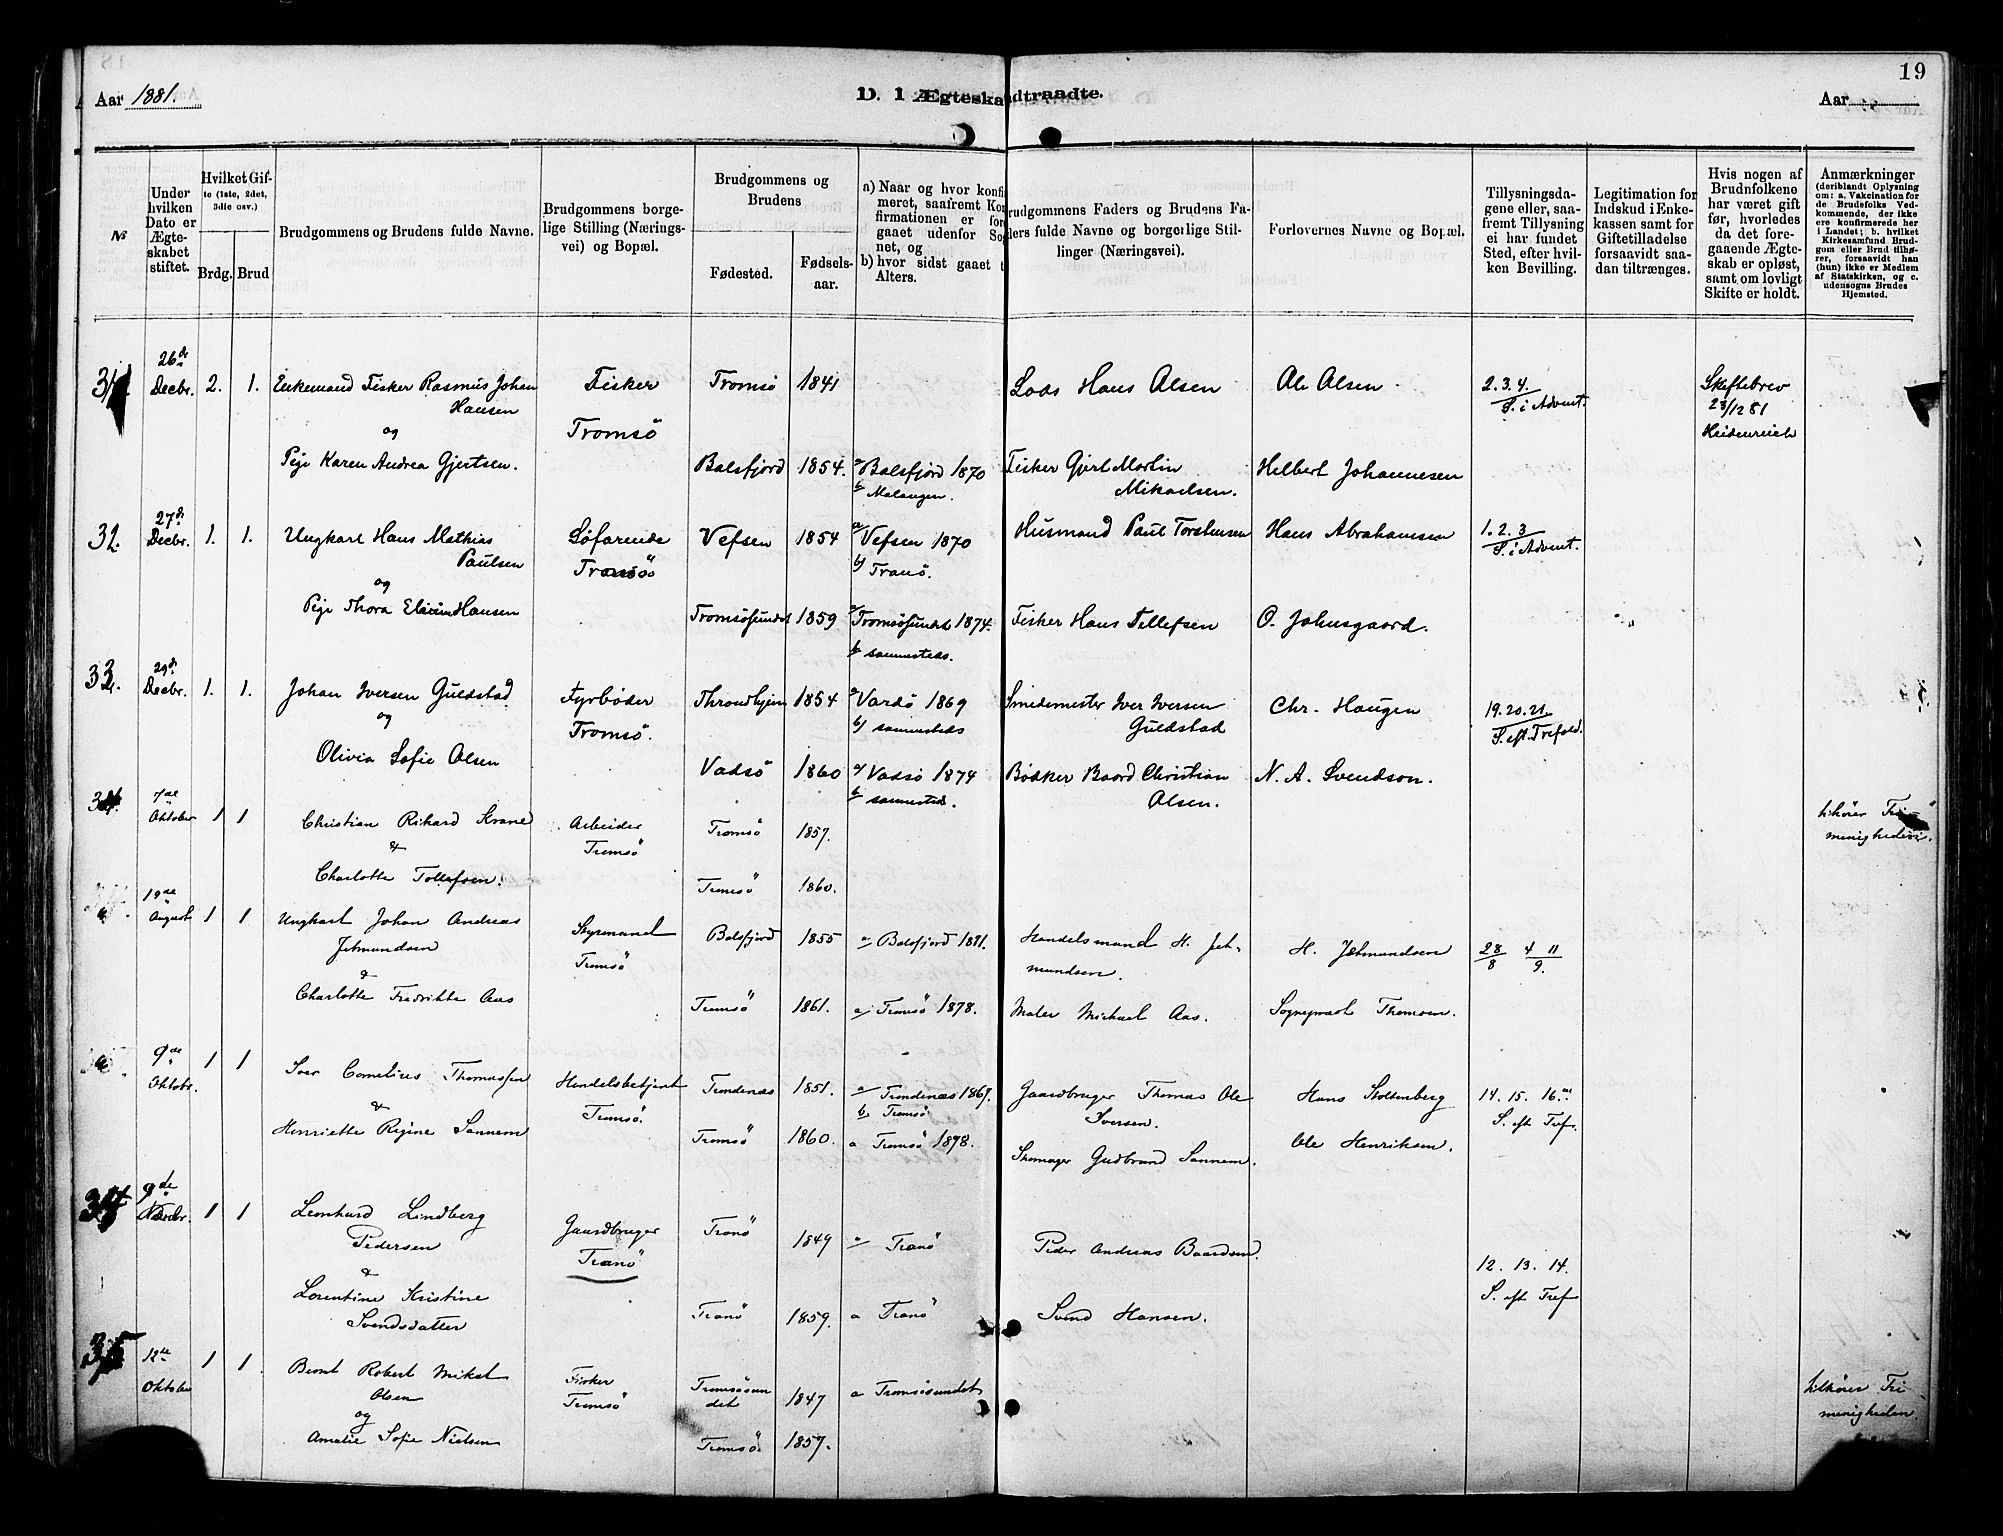 19
Aar 1881.
D. 1 Ægteskabtraadte.
Aar
№
Under hvilken Dato er Ægteskabet stiftet.
Hvilket Gifte (1ste, 2det, 3die osv.)
Brdg.
Brud
Brudgommens og Brudens fulde Navne.
Brudgommens borgelige Stilling (Næringsvei) og Bopæl.
Brudgommens og Brudens
Fødested.
Fødselsaar.
a) Naar og hvor konfi
meret, saafremt Kon
firmationen er for
gaaet udenfor Sog
net, og
b) hvor sidst gaaet t
Alters.
rudgommens Faders og Brudens Fa-
ders fulde Navne og borgerlige Stil-
linger (Næringsvei).
Forlovernes Navne og Bopæl.
Tillysningsda-
gene eller, saa-
fremt Tillysning
ei har fundet
Sted, efter hvil-
ken Bevilling.
Legitimation for
Indskud i Enke-
kassen samt for
Giftetilladelse
forsaavidt saa-
dan tiltrænges.
Hvis nogen af
Brudnfolkene
har været gift
før, hvorledes
da det fore-
gaaende Ægte-
skab er opløst,
samt om lovligt
Skifte er holdt.
Anmærkninger
(deriblandt Oplysning
om: a. Vakcination for
de Brudefolks Ved-
kommende, der ikke
ere konfirmerede her
i Landet; b. hvilket
Kirkesamfund Brud-
gom eller Brud tilhø-
rer, forsaavidt han
(hun) ikke er Medlem
af Statskirken, og c.
udensogns Brudes
Hjemsted.
31. 26de Decbr. 2. 1. Enkemand Fisker Rasmus Johan Hansen Fisker Tromsö Tromsö 1841 Lods Hans Olsen Ole Olsen 2.3.4. S. i Advent. Skiftebrev 23/12 81 Heidenreich
og
Pige Karen Andrea Gjertsen. Balsfjord 1854. a Balsfjord 1870 b Malangen. Fisker Gjert Martin Mikaelsen. Helbert Johannesen
32. 27de Decbr. 1. 1. Ungkarl Hans Mathias Paulsen Söfarende Tromsö Vefsen 1854 a/ Vefsen 1870 b/ Tranö. Husmand Paul Torstensen Hans Abrahamsen 1.2.3 S. i Advent.
og
Pige Thora Hansen Tromsösundet 1859 a/ Tromsösundet 1874. b sammesteds. Fisker Hans Tellefsen O. Johnsgaard.
33. 29de Decbr. 1. 1. Johan Iversen Guldstad Fyrböder Tromsö. Throndhjem 1854 a Vardö 1869 b/ sammesteds Smedemester Iver Iversen Guldstad Chr. Haugen 19.20.21. S. eft. Trefold.
og
Olivia Sofie Olsen Vadsö 1860 a/ Vadsö 1874 b sammesteds. Bödker Baard Christian Olsen. N. A. Svendson.
34. 7de Oktober 1 1 Christian Rikard Krane Arbeider Tromsö Tromsö 1857. tilhörer Frimenigheden.
&
Charlotte Tollefsen. Tromsö 1860.
19de August 1 1 Ungkarl Johan Andreas Jetmundsen Styrmand Tromsö Balsfjord 1855 a Balsfjord 1871. Handelsmand H. Jetmundsen. H. Jetmundsen 28/8 4 11/9.
&
Charlotte Fredrikke Aas Tromsö 1861. a/ Tromsö 1878. Maler Michael Aas. Sogneprest Thomsen.
9de Oktobr. 1 1 Iver Cornelius Thomassen Handelsbetjent Tromsö. Trondenæs 1851. a/ Trondenæs 1867. b/ Tromsö Gaardbruger Thomas Ole Iversen. Hans Stoltenberg 14. 15. 16de S. eft Tref.
&
Henriette Regine Sannem Tromsö 1860. a Tromsö 1878. Skomager Gudbrand Sannem. Ole Henriksen.
34 9de 1 1 Leonhard Lindberg Pedersen Gaardbruger Tranö Tranö 1849 a/ Tranö Peder Andreas Baardsen. 12. 13. 14. S. eft Tref
&
Lorentine Kristine Svendsdatter Tranö 1859. a Tranö Svend Hansen.
35 12te Oktober 1 1 Bernt Robert Mikal Olsen Fisker Tromsö Tromsösundet 1847 a Tromsösundet tilhörer Frimenigheden.
og
Amalie Sofie Nielsen Tromsö. 1857.